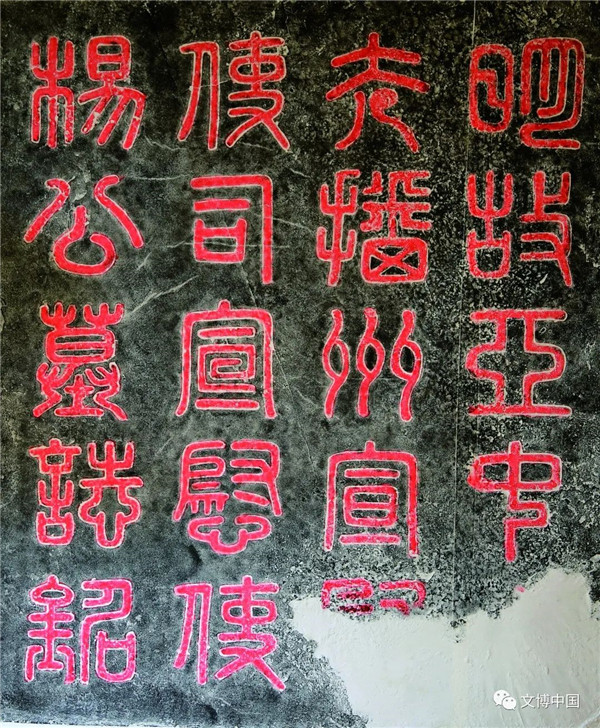 明故亞中
夫播州宣
使司宣慰使
楊公墓誌銘
文博中国